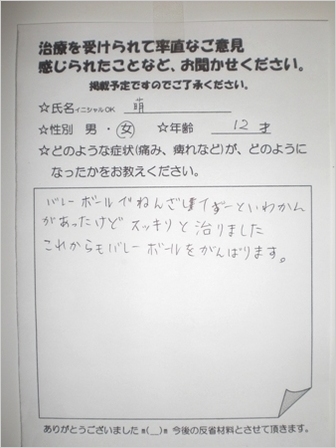 治療を受けられて率直なご意見
感じられたことなど、お聞かせください。
掲載予定ですのでご了承ください。
☆氏名イニシャルOK 萌
☆性別 男・女 ☆年齢 12 才
☆どのような症状(痛み、痺れなど)が、どのように
なったかをお教えください。
バレーボールでねんざしてずーといわかん
があったけどスッキリと治りました
これからもバレーボールをがんばります。
ありがとうございましたm(__)m 今後の反省材料とさせて頂きます。